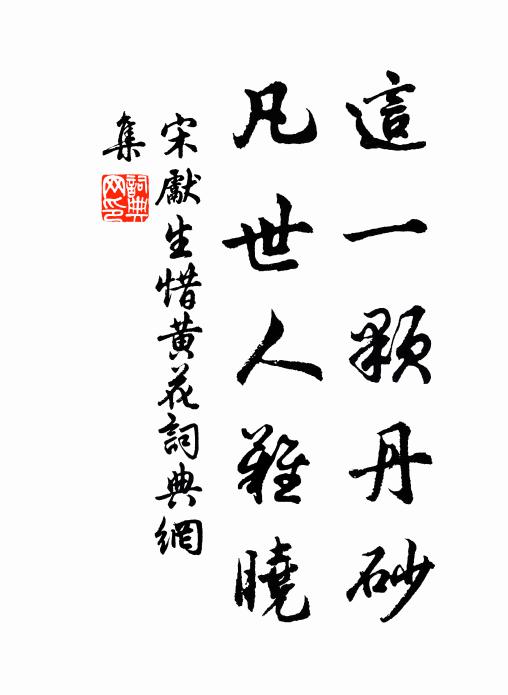 這一顆丹砂
凡世人難曉
宋獻生惜黄花詞典網
集
詞典
网印